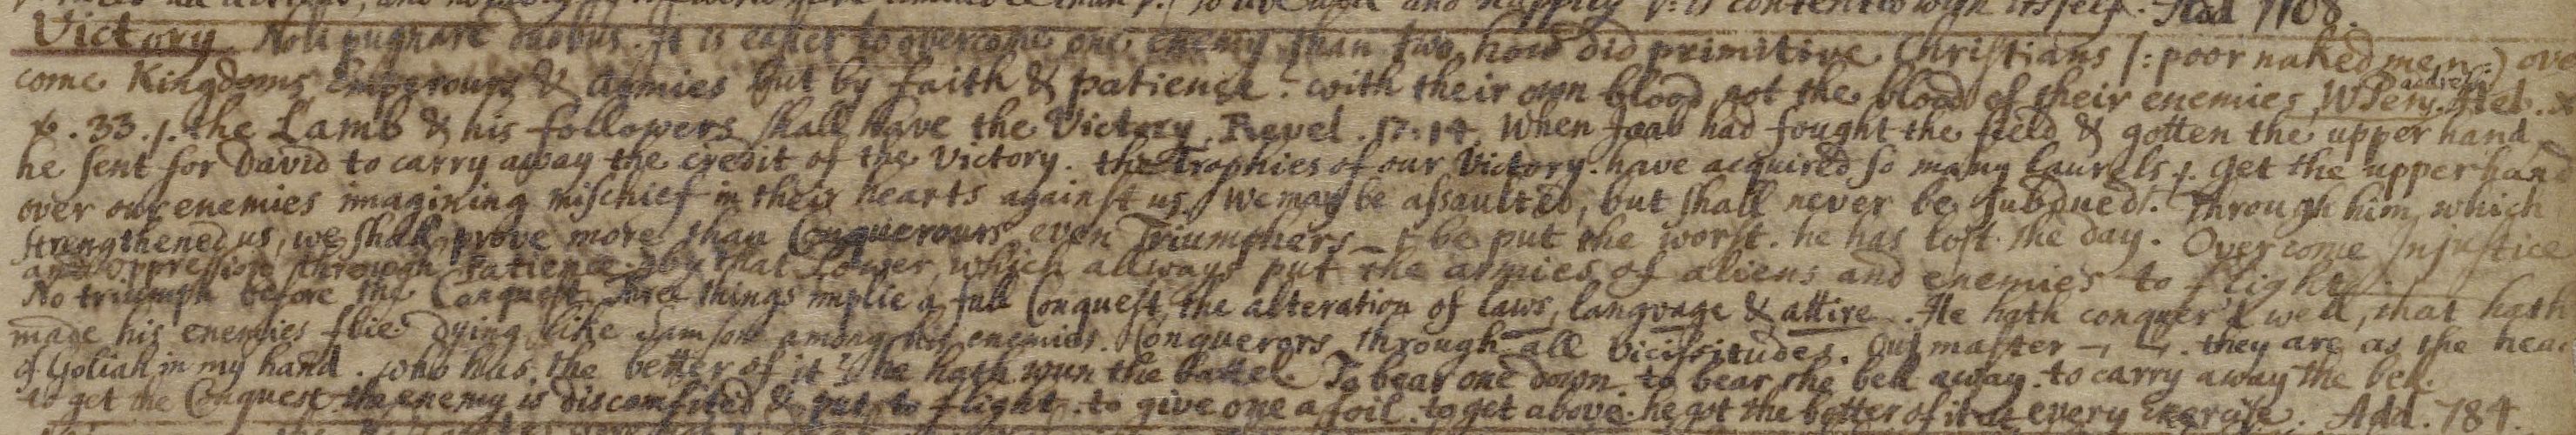 and happily contentedly with itself. Add 1108.
Victory Noli pugnare duobus. It is easier to overcome one enemy than two. how did primitive Christians /: poor naked men :) ove
come Kingdoms Emperours & Armies but by faith & patience. with their own blood not the blood of their enemies, W Pen. address Hel.
p. 33. /. the Lamb & his followers shall have the Victory. Revel. 17: 14. When Joab had fought the field & gotten the upper hand
he sent for David to carry away the credit of the Victory. the Trophies of our Victory have acquired so many laurels. /. get the upper hand
over our enemies imagining mischief in their hearts against us. We may be assaulted, but shall never be subdued. Through him, which
strengthened us, we shall prove more than Conquerours even Triumphers be put the worst. he has lost the day. Overcome Injustice
and oppression through Patience by that Power, which allways put the armies of aliens and enemies to flight.
No triumph before the Conquest. Three things implie a full Conquest, the alteration of laws, language & attire. He hath conquer'd well, that hath
made his enemies flie. dying like Samson among his enemies. Conquerors through all Vicissitudes. Outmaster they are as the hea
of Goliah in my hand. who has the better of it? he hath wun the battel. To bear one down. to bear the bell away. to carry away the bell.
to get the Conquest. the enemy is discomfited & put to flight. to give one a foil. to get above. he got the better of it every Exercise. Add. 784.